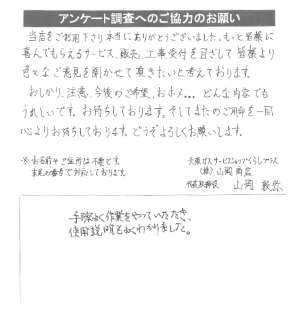 アンケート調査へのご協力のお願い
当店をご利用下さり本当にありがとうございました。もっと皆様に
喜んでもらえるサービス、販売、工事受付を目ざして皆様より
色々なご意見を聞かせて頂きたいと考えております。
おしかり、注意、今後のご希望、おホメ…どんな内容でも
うれしいです。お待ちしております。そしてまたのご用命を一同
心よりお待ちしております。どうぞよろしくお願いします。
※お名前やご住所は不要です。
大阪ガスサービスショップくらしプラス
(株)山岡商店
代表取締役 山岡
手際よく作業をやっていただき、
使用説明もよくわかりました。